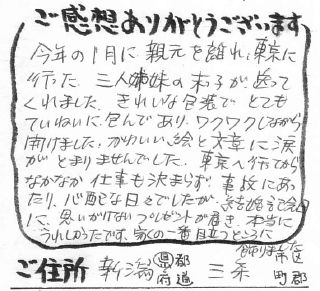 ご感想ありがとうございます
今年の1月に、親元を離れ、東京に
行った 三人姉妹の末子が、送って
くれました。きれいな包装で とても
ていねいに 包んであり、ワクワクしながら
開けました。かわいい絵と文章に涙
が とまりませんでした。東京へ行ってから
なかなか 仕事も決まらず 事故にあっ
たり、心配な日々でしたが、結婚記念日
に、思いがけない プレゼントが届き、本当に
うれしかったです。家の一番目立つところに
飾りました
ご住所 新潟 都道府県 三条 市区町郡